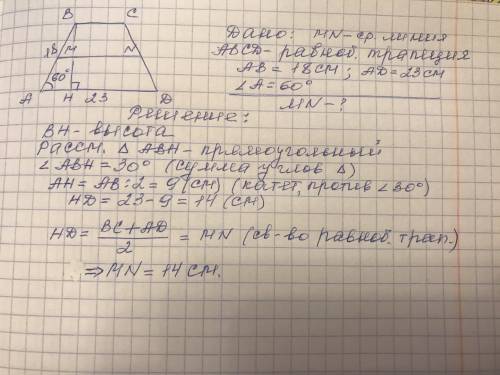 B C
18 M N
60°
A H 23 D
Дано: MN-ср. линия
ABCD-равноб. трапция
AB = 18 см; AD=23 см
∠A=60°
MN-?
Решение:
BH-высота
Рассм. △ ABH-прямоугольный
∠ABH=30° (сумма углов △)
AH=AB:2=9(см) (катет, против ∠30°)
HD=23-9=14(см)
HD= BC+AD/2 = MN (св-во равноб. трап.)
⇒MN=14 см.